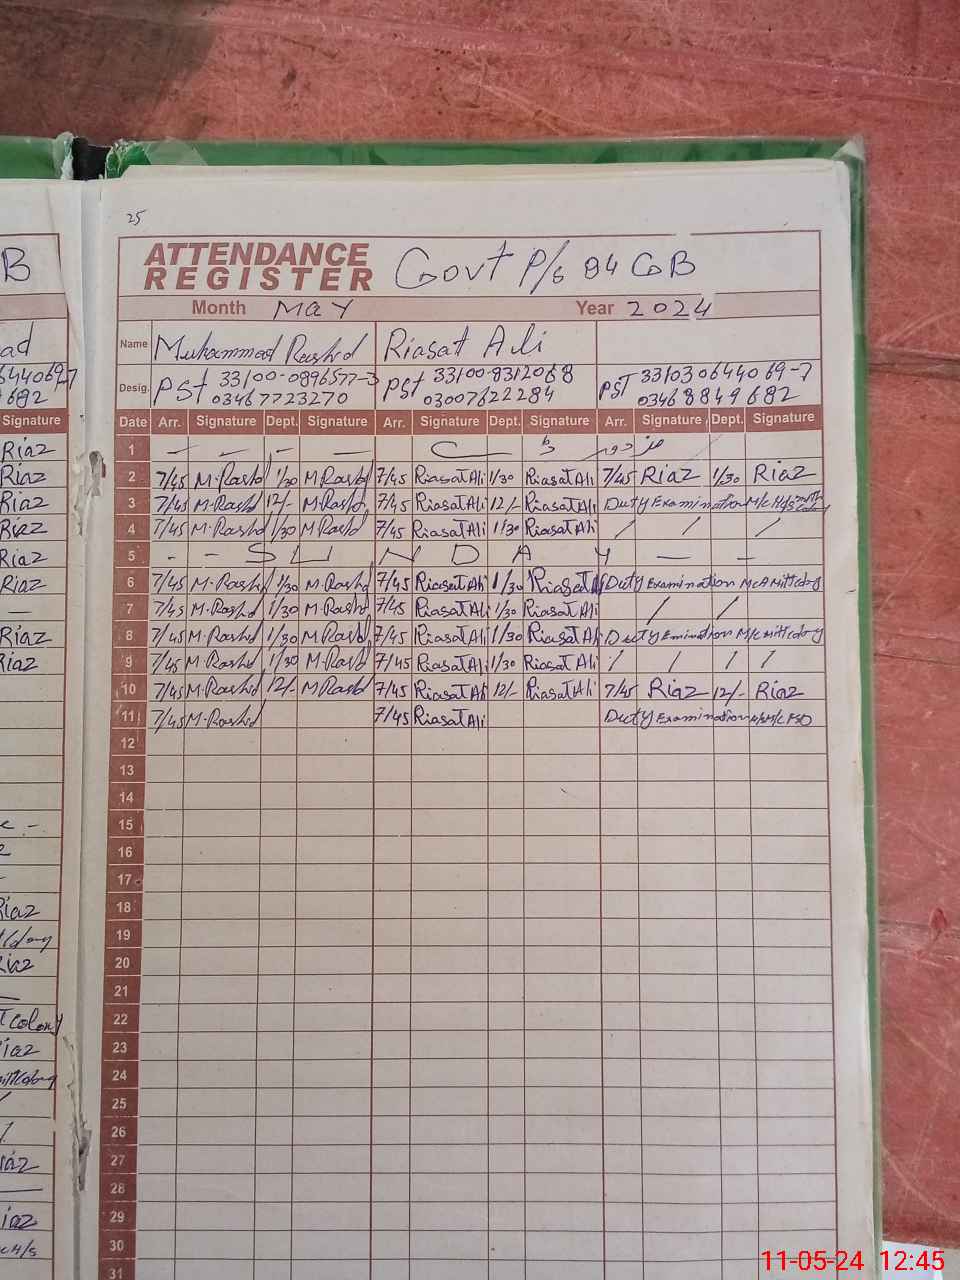 25
ATTENDANCE REGISTER Govt P/s 94 GB
Month May Year 2024
Name Muhammad Rashid Riasat Ali
Desig. PST 33100-0896577-3 PST 33100-8312068 PST 3310306440 69-7
03467723270 03007622284 03468849682
Date Arr. Signature Dept. Signature Arr. Signature Dept. Signature Arr. Signature Dept. Signature
1 — — - —
2 7/45 M.Rashid 1/30 M.Rashid 7/45 Riasat Ali 1/30 Riasat Ali 7/45 Riaz 1/30 Riaz
3 7/45 M.Rashid 12/- M.Rashid 7/45 Riasat Ali 12/- Riasat Ali Duty Examination
4 7/45 M.Rashid 1/30 M.Rashid 7/45 Riasat Ali 1/30 Riasat Ali / / / /
5 - - S U N D A Y — -
6 7/45 M.Rashid 1/30 M.Rashid 7/45 Riasat Ali 1/30 Riasat Ali Duty Examination
7 7/45 M.Rashid 1/30 M.Rashid 7/45 Riasat Ali 1/30 Riasat Ali / /
8 7/45 M.Rashid 1/30 M.Rashid 7/45 Riasat Ali 1/30 Riasat Ali Duty Emination
9 7/45 M.Rashid 1/30 M.Rashid 7/45 Riasat Ali 1/30 Riasat Ali / / / /
10 7/45 M.Rashid 12/- M.Rashid 7/45 Riasat Ali 12/- Riasat Ali 7/45 Riaz 12/- Riaz
11 7/45 M.Rashid 7/45 Riasat Ali Duty Examination
12
13
14
15
16
17
18
19
20
21
22
23
24
25
26
27
28
29
30
31
B
Signature
Riaz
Riaz
Riaz
Riaz
Riaz
Riaz
—
Riaz
Riaz
Riaz
Riaz
Riaz
Riaz
Riaz
11-05-24 12:45